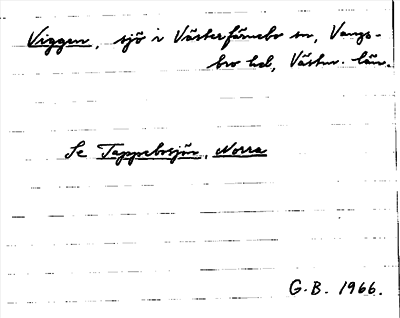 Viggen, sjö i Västerfärnebo sn, Vangs-
bro hd, Västm. län.
Se Tappebosjön, Norra
G.B. 1966.